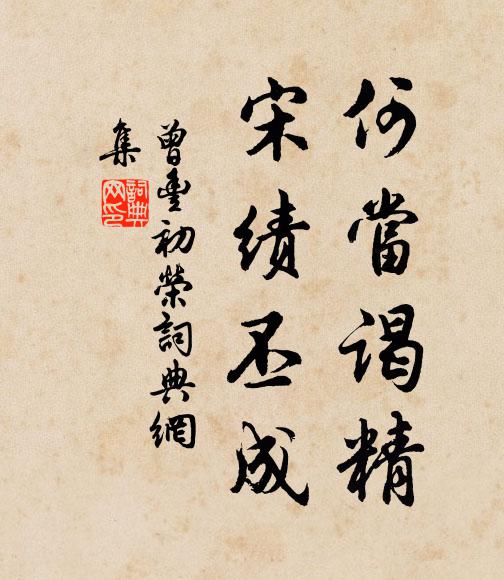 何當謁精
宋績丕成
曾豊初榮詞典網
集
詞典
网印